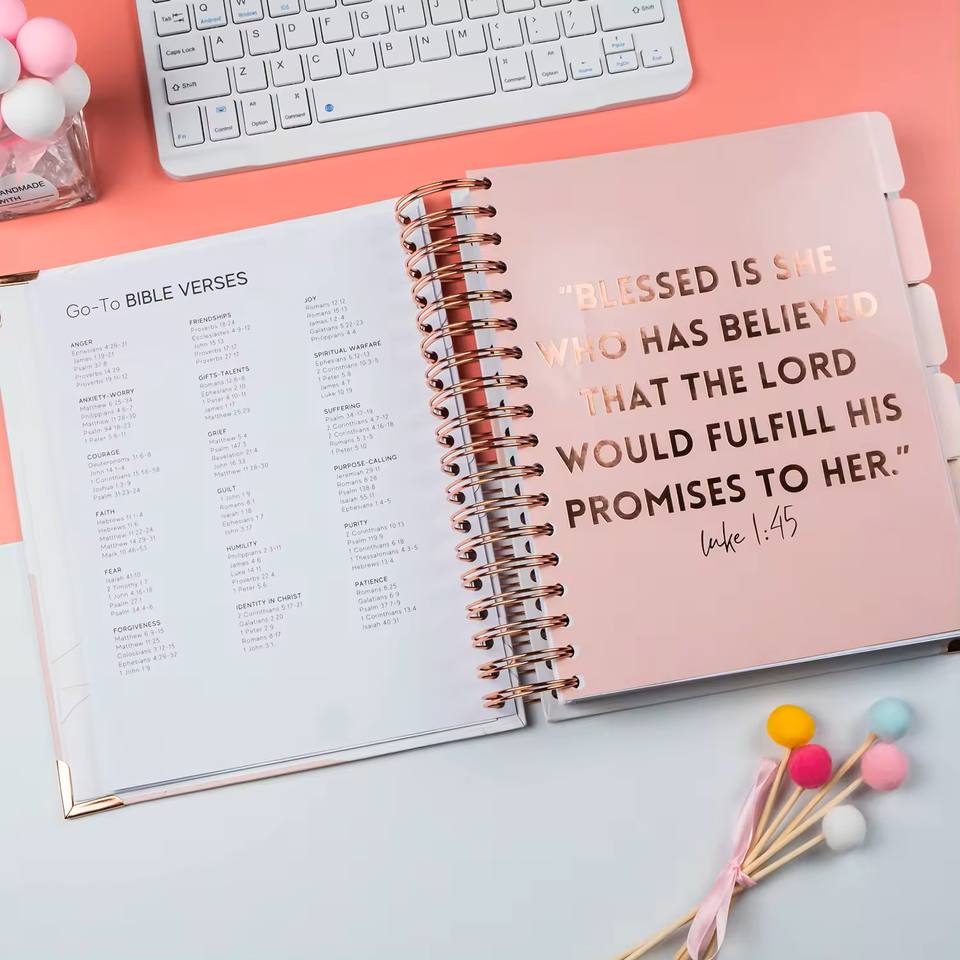 Tab Q W
Android Windows
Caps Lock A S D F G H J K L
Shift Z X C V B N M Shift
Fn Control Alt Option Command Command Alt Option Home PgDn End
PgUp
HANDMADE
WITH
Go-To BIBLE VERSES
ANGER
Ephesians 4:26-31
James 1:19-21
Psalm 37:8
Proverbs 14:29
Proverbs 19:11-12
ANXIETY-WORRY
Matthew 6:25-34
Philippians 4:6-7
Matthew 11:28-30
Psalm 94:18-23
1 Peter 5:6-11
COURAGE
Deuteronomy 31:6-8
John 14:1-4
1 Corinthians 15:56-58
Joshua 1:3-9
Psalm 31:23-24
FAITH
Hebrews 11:1-4
Hebrews 11:6
Matthew 11:22-24
Matthew 14:29-31
Mark 10:46-53
FEAR
Isaiah 41:10
2 Timothy 1:7
1 John 4:16-18
Psalm 27:1
Psalm 34:4-6
FORGIVENESS
Matthew 6:9-15
Matthew 11:25
Colossians 3:12-15
Ephesians 4:29-32
1 John 1:9
FRIENDSHIPS
Proverbs 18:24
Ecclesiastes 4:9-12
John 15:13
Proverbs 17:17
Proverbs 27:17
GIFTS-TALENTS
Romans 12:6-8
Ephesians 2:10
1 Peter 4:10-11
James 1:17
Matthew 25:29
GRIEF
Matthew 5:4
Psalm 147:3
Revelation 21:4
John 16:33
Matthew 11:28-30
GUILT
1 John 1:9
Romans 8:1
Isaiah 1:18
Ephesians 1:7
John 3:17
HUMILITY
Philippians 2:3-11
James 4:6
Luke 14:11
Proverbs 22:4
1 Peter 5:6
IDENTITY IN CHRIST
2 Corinthians 5:17-21
Galatians 2:20
1 Peter 2:9
Romans 8:17
1 John 3:1
JOY
Romans 12:12
Romans 15:13
James 1:2-4
Galatians 5:22-23
Philippians 4:4
SPIRITUAL WARFARE
Ephesians 6:12-13
2 Corinthians 10:3-5
1 Peter 5:8
James 4:7
Luke 10:19
SUFFERING
Psalm 34:17-19
2 Corinthians 4:7-12
2 Corinthians 4:16-18
Romans 5:3-5
1 Peter 5:10
PURPOSE-CALLING
Jeremiah 29:11
Romans 8:28
Psalm 138:8
Isaiah 55:11
Ephesians 1:4-5
PURITY
2 Corinthians 10:13
Psalm 119:9
1 Corinthians 6:18
1 Thessalonians 4:3-5
Hebrews 13:4
PATIENCE
Romans 8:25
Galatians 6:9
Psalm 37:7-9
1 Corinthians 13:4
Isaiah 40:31
"BLESSED IS SHE
WHO HAS BELIEVED
THAT THE LORD
WOULD FULFILL HIS
PROMISES TO HER."
Luke 1:45